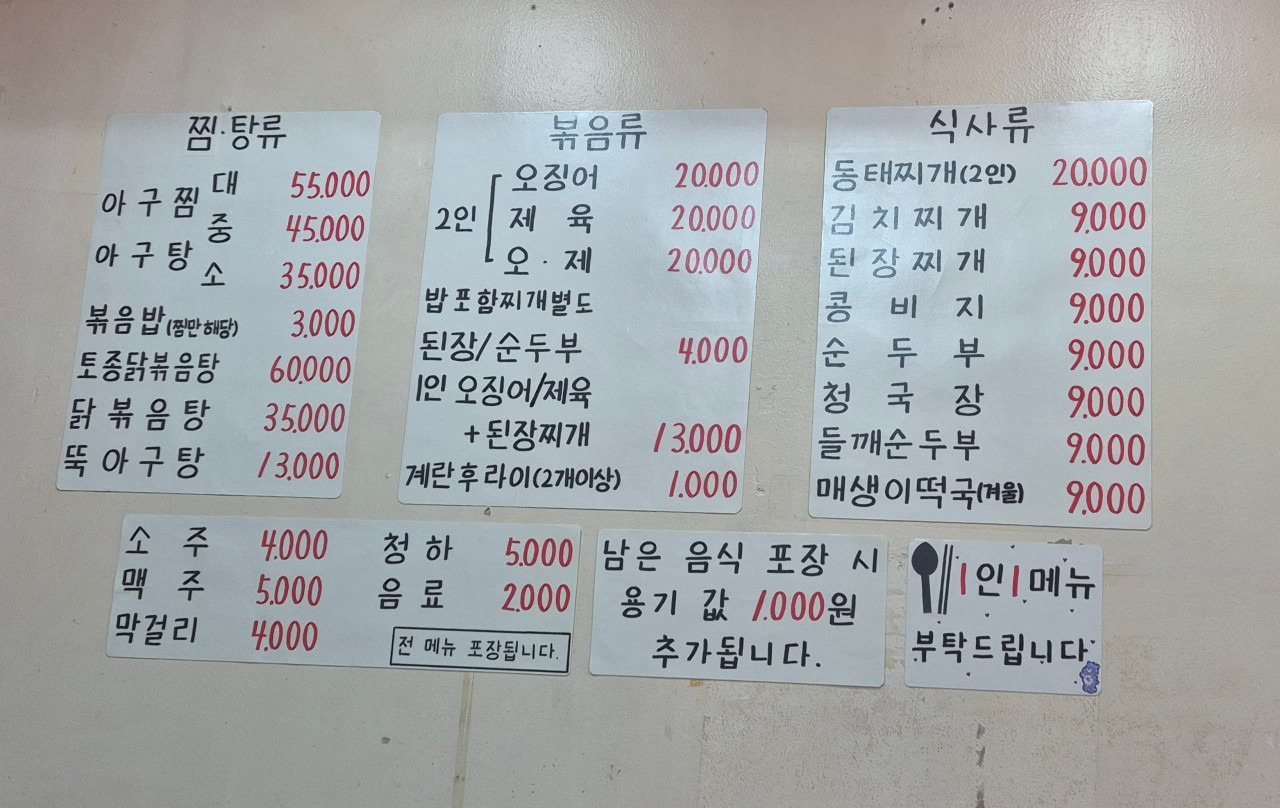 찜·탕류
아구찜 대 55.000
중 45.000
아구탕 소 35.000
볶음밥(찜만해당) 3.000
토종닭볶음탕 60.000
닭볶음탕 35.000
뚝아구탕 13.000
볶음류
2인 오징어 20.000
제육 20.000
오·제 20.000
밥포함찌개별도
된장/순두부 4.000
1인 오징어/제육
+된장찌개 13.000
계란후라이(2개이상) 1.000
식사류
동태찌개(2인) 20.000
김치찌개 9.000
된장찌개 9.000
콩비지 9.000
순두부 9.000
청국장 9.000
들깨순두부 9.000
매생이떡국(겨울) 9.000
소주 4.000
맥주 5.000
막걸리 4.000
청하 5.000
음료 2.000
전 메뉴 포장됩니다.
남은 음식 포장 시
용기 값 1.000원
추가됩니다.
1인1메뉴
부탁드립니다